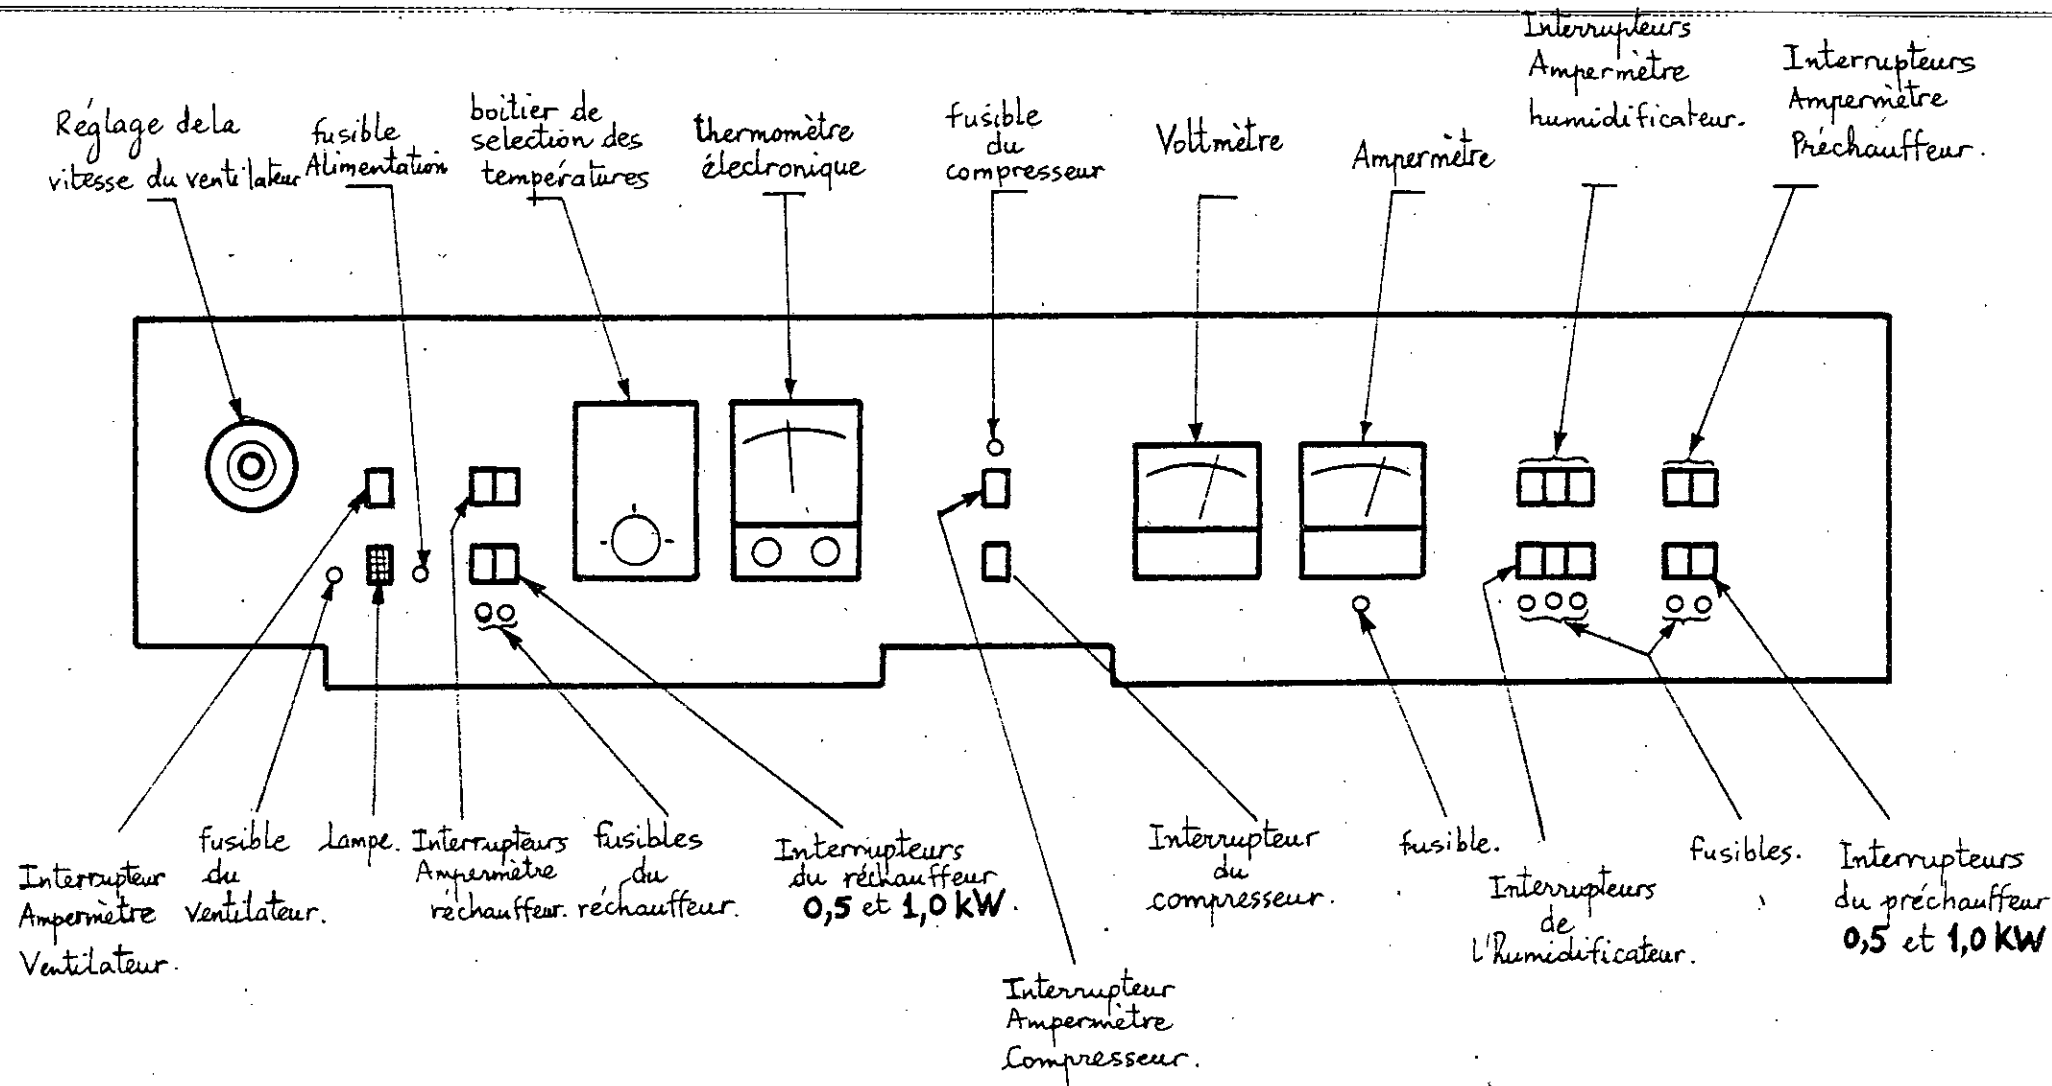 Réglage de la
vitesse du ventilateur
fusible
Alimentation
boitier de
selection des
températures
thermomètre
électronique
fusible
du
compresseur
Voltmètre
Ampermètre
Interrupteurs
Ampermètre
humidificateur.
Interrupteurs
Ampermètre
Préchauffeur.
Interrupteur
Ampermètre
Ventilateur.
fusible
du
ventilateur.
Lampe.
Interrupteurs
Ampermètre
réchauffeur.
fusibles
du
réchauffeur.
Interrupteurs
du réchauffeur
0,5 et 1,0 kW.
Interrupteur
Ampermètre
Compresseur.
Interrupteur
du
compresseur.
fusible.
Interrupteurs
de
l'humidificateur.
fusibles.
Interrupteurs
du préchauffeur
0,5 et 1,0 KW